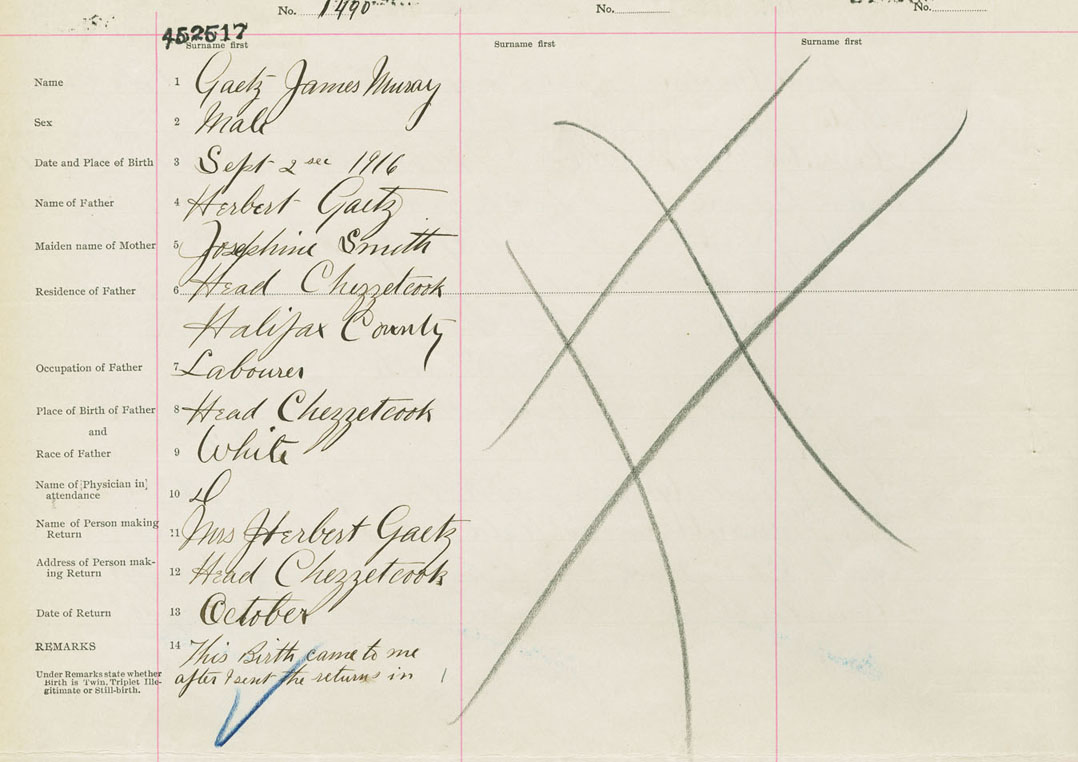 No. 1490 No. No.
452517
Surname first Surname first Surname first
Name 1 Gaetz James Muray
Sex 2 Male
Date and Place of Birth 3 Sept 2 1916
Name of Father 4 Herbert Gaetz
Maiden name of Mother 5 Josephine Smith
Residence of Father 6 Head Chezzetcook
Halifax County
Occupation of Father 7 Labourer
Place of Birth of Father 8 Head Chezzetcook
and
Race of Father 9 White
Name of [Physician in]
attendance 10
Name of Person making
Return 11 Mrs Herbert Gaetz
Address of Person mak-
ing Return 12 Head Chezzetcook
Date of Return 13 October
REMARKS 14 This Birth came to me
after I sent the returns in
Under Remarks state whether
Birth is Twin, Triplet Ille-
gitimate or Still-birth.